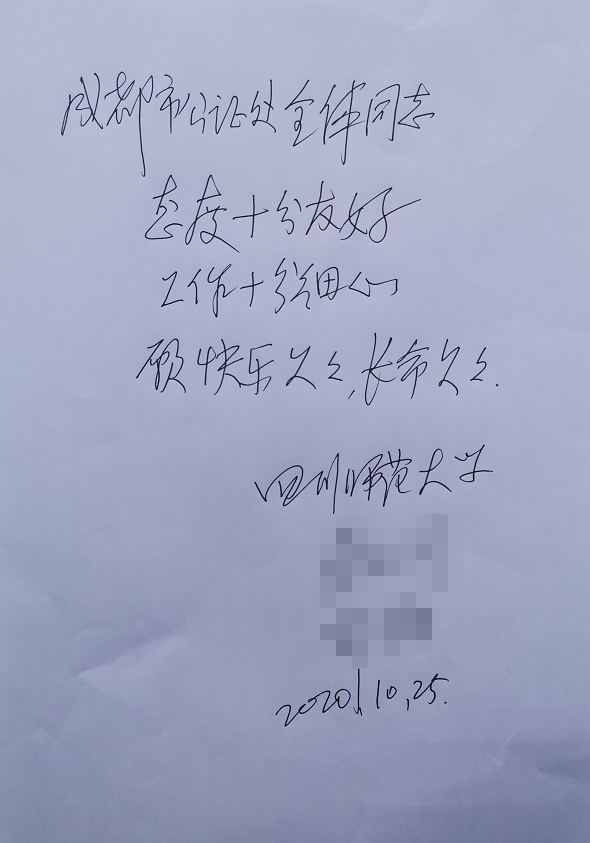 成都市公证处全体同志
态度十分友好
工作十分细心
愿快乐久久,长命久久.
四川师范大学
2020.10.25.